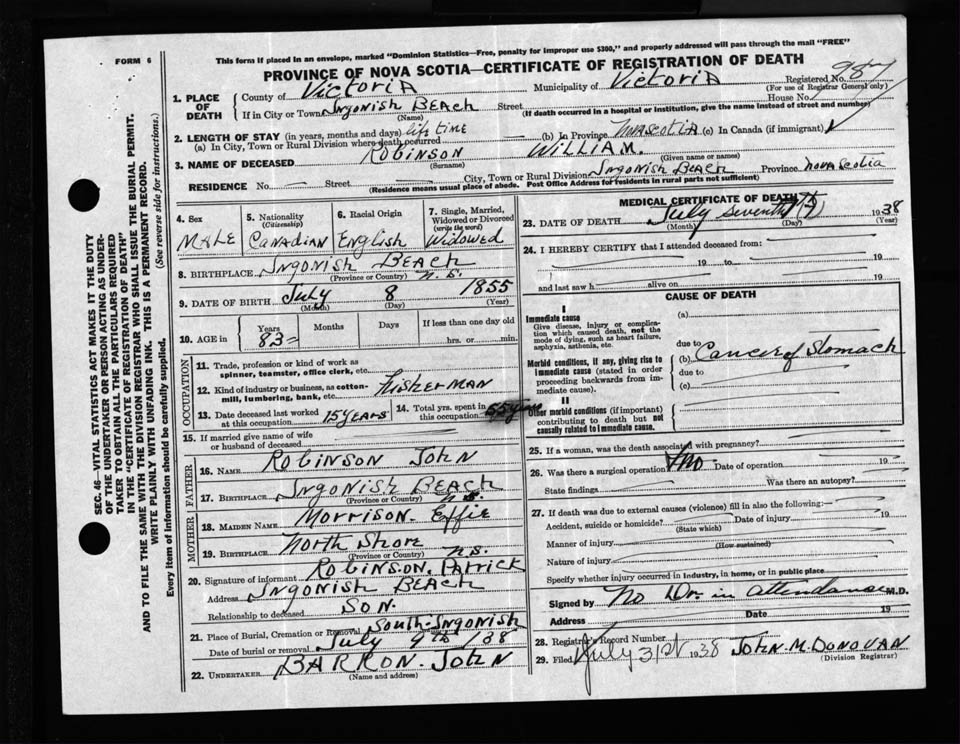 FORM 6
This form if placed in an envelope, marked "Dominion Statistics—Free, penalty for improper use $300," and properly addressed will pass through the mail "FREE"
PROVINCE OF NOVA SCOTIA—CERTIFICATE OF REGISTRATION OF DEATH
Registered No. 987
(For use of Registrar General only)
1. PLACE OF DEATH
County of Victoria Municipality of Victoria
If in City or Town Ingonish Beach Street House No.
(Name) (If death occurred in a hospital or institution, give the name instead of street and number)
2. LENGTH OF STAY (in years, months and days)
(a) In City, Town or Rural Division where death occurred life time (b) In Province (c) In Canada (if immigrant)
3. NAME OF DECEASED Robinson William.
(Surname) (Given name or names)
RESIDENCE No. Street City, Town or Rural Division Ingonish Beach Province Nova Scotia
(Residence means usual place of abode. Post Office Address for residents in rural parts not sufficient)
4. Sex
MALE
5. Nationality (Citizenship)
Canadian
6. Racial Origin
English
7. Single, Married, Widowed or Divorced (write the word)
Widowed
8. BIRTHPLACE Ingonish Beach N.S.
(Province or Country)
9. DATE OF BIRTH July 8 1855
(Month) (Day) (Year)
10. AGE in Years Months Days If less than one day old
83 hrs. or min.
OCCUPATION
11. Trade, profession or kind of work as spinner, teamster, office clerk, etc.
12. Kind of industry or business, as cotton-mill, lumbering, bank, etc. Fisherman
13. Date deceased last worked at this occupation 15 years
14. Total yrs. spent in this occupation 55 years
15. If married give name of wife or husband of deceased
FATHER
16. NAME Robinson John
17. BIRTHPLACE Ingonish Beach N.S.
(Province or Country)
MOTHER
18. MAIDEN NAME Morrison. Effie
19. BIRTHPLACE North Shore N.S.
(Province or Country)
20. Signature of informant Robinson. Patrick
Address Ingonish Beach
Relationship to deceased Son.
21. Place of Burial, Cremation or Removal South-Ingonish
Date of burial or removal July 9th /38
22. UNDERTAKER BARRON. John
(Name and address)
MEDICAL CERTIFICATE OF DEATH
23. DATE OF DEATH July Seventh (7) 1938
(Month) (Day) (Year)
24. I HEREBY CERTIFY that I attended deceased from:
19 to 19
and last saw h alive on 19
CAUSE OF DEATH
I
Immediate cause
Give disease, injury or complication which caused death, not the mode of dying, such as heart failure, asphyxia, asthenia, etc.
(a)
due to
Morbid conditions, if any, giving rise to immediate cause (stated in order proceeding backwards from immediate cause).
(b) Cancer of Stomach
due to
(c)
II
Other morbid conditions (if important) contributing to death but not causally related to immediate cause.
25. If a woman, was the death associated with pregnancy?
26. Was there a surgical operation? No Date of operation 19
State findings Was there an autopsy?
27. If death was due to external causes (violence) fill in also the following:—
Accident, suicide or homicide? Date of injury 19
(State which)
Manner of injury
(How sustained)
Nature of injury
Specify whether injury occurred in industry, in home, or in public place
Signed by No Dr. in attendance M.D.
Address Date 19
28. Registrar's Record Number
29. Filed July 31st 1938 John. M. Donovan
(Division Registrar)
SEC. 46—VITAL STATISTICS ACT MAKES IT THE DUTY
OF THE UNDERTAKER OR PERSON ACTING AS UNDER-
TAKER TO OBTAIN ALL THE PARTICULARS REQUIRED
IN THE "CERTIFICATE OF REGISTRATION OF DEATH"
AND TO FILE THE SAME WITH THE DIVISION REGISTRAR WHO SHALL ISSUE THE BURIAL PERMIT.
WRITE PLAINLY WITH UNFADING INK. THIS IS A PERMANENT RECORD.
Every item of information should be carefully supplied. (See reverse side for instructions.)